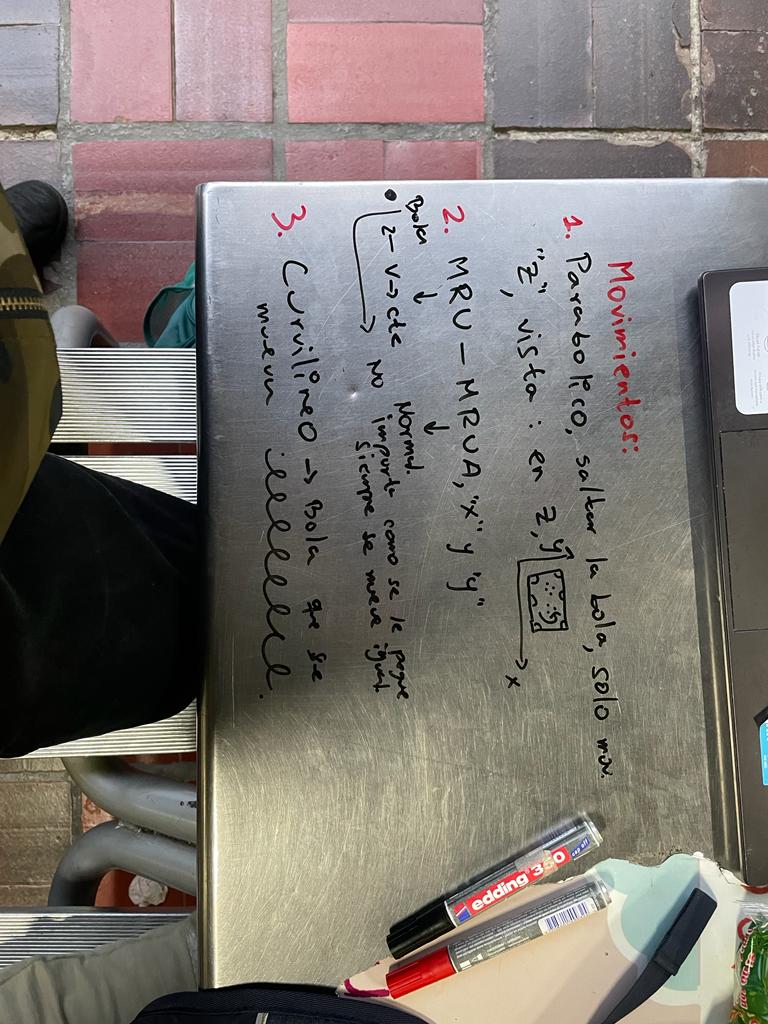 Movimientos:
1. Parabolico, saltar la bola, solo mov.
"z", vista: en z, y
x
2. MRU - MRUA, "x" y "y"
Bola ↓ ↓
2- V→cte Normal.
→ No importa como se le pegue
siempre se mueve igual
3. Curvilíneo → Bola que se
mueva
edding 360
cap off